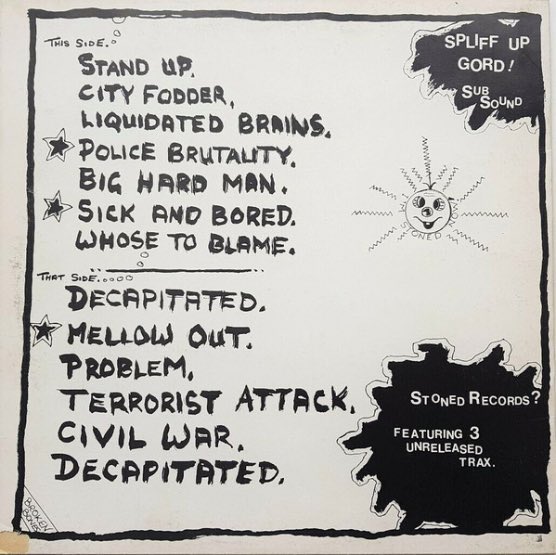 THIS SIDE.
STAND UP.
CITY FODDER.
LIQUIDATED BRAINS.
POLICE BRUTALITY.
BIG HARD MAN.
SICK AND BORED.
WHOSE TO BLAME.
THAT SIDE....
DECAPITATED.
MELLOW OUT.
PROBLEM.
TERRORIST ATTACK.
CIVIL WAR.
DECAPITATED.
SPLIFF UP
GORD!
SUB
SOUND
STONED
STONED RECORDS?
FEATURING 3
UNRELEASED
TRAX.
BROKEN
BONES